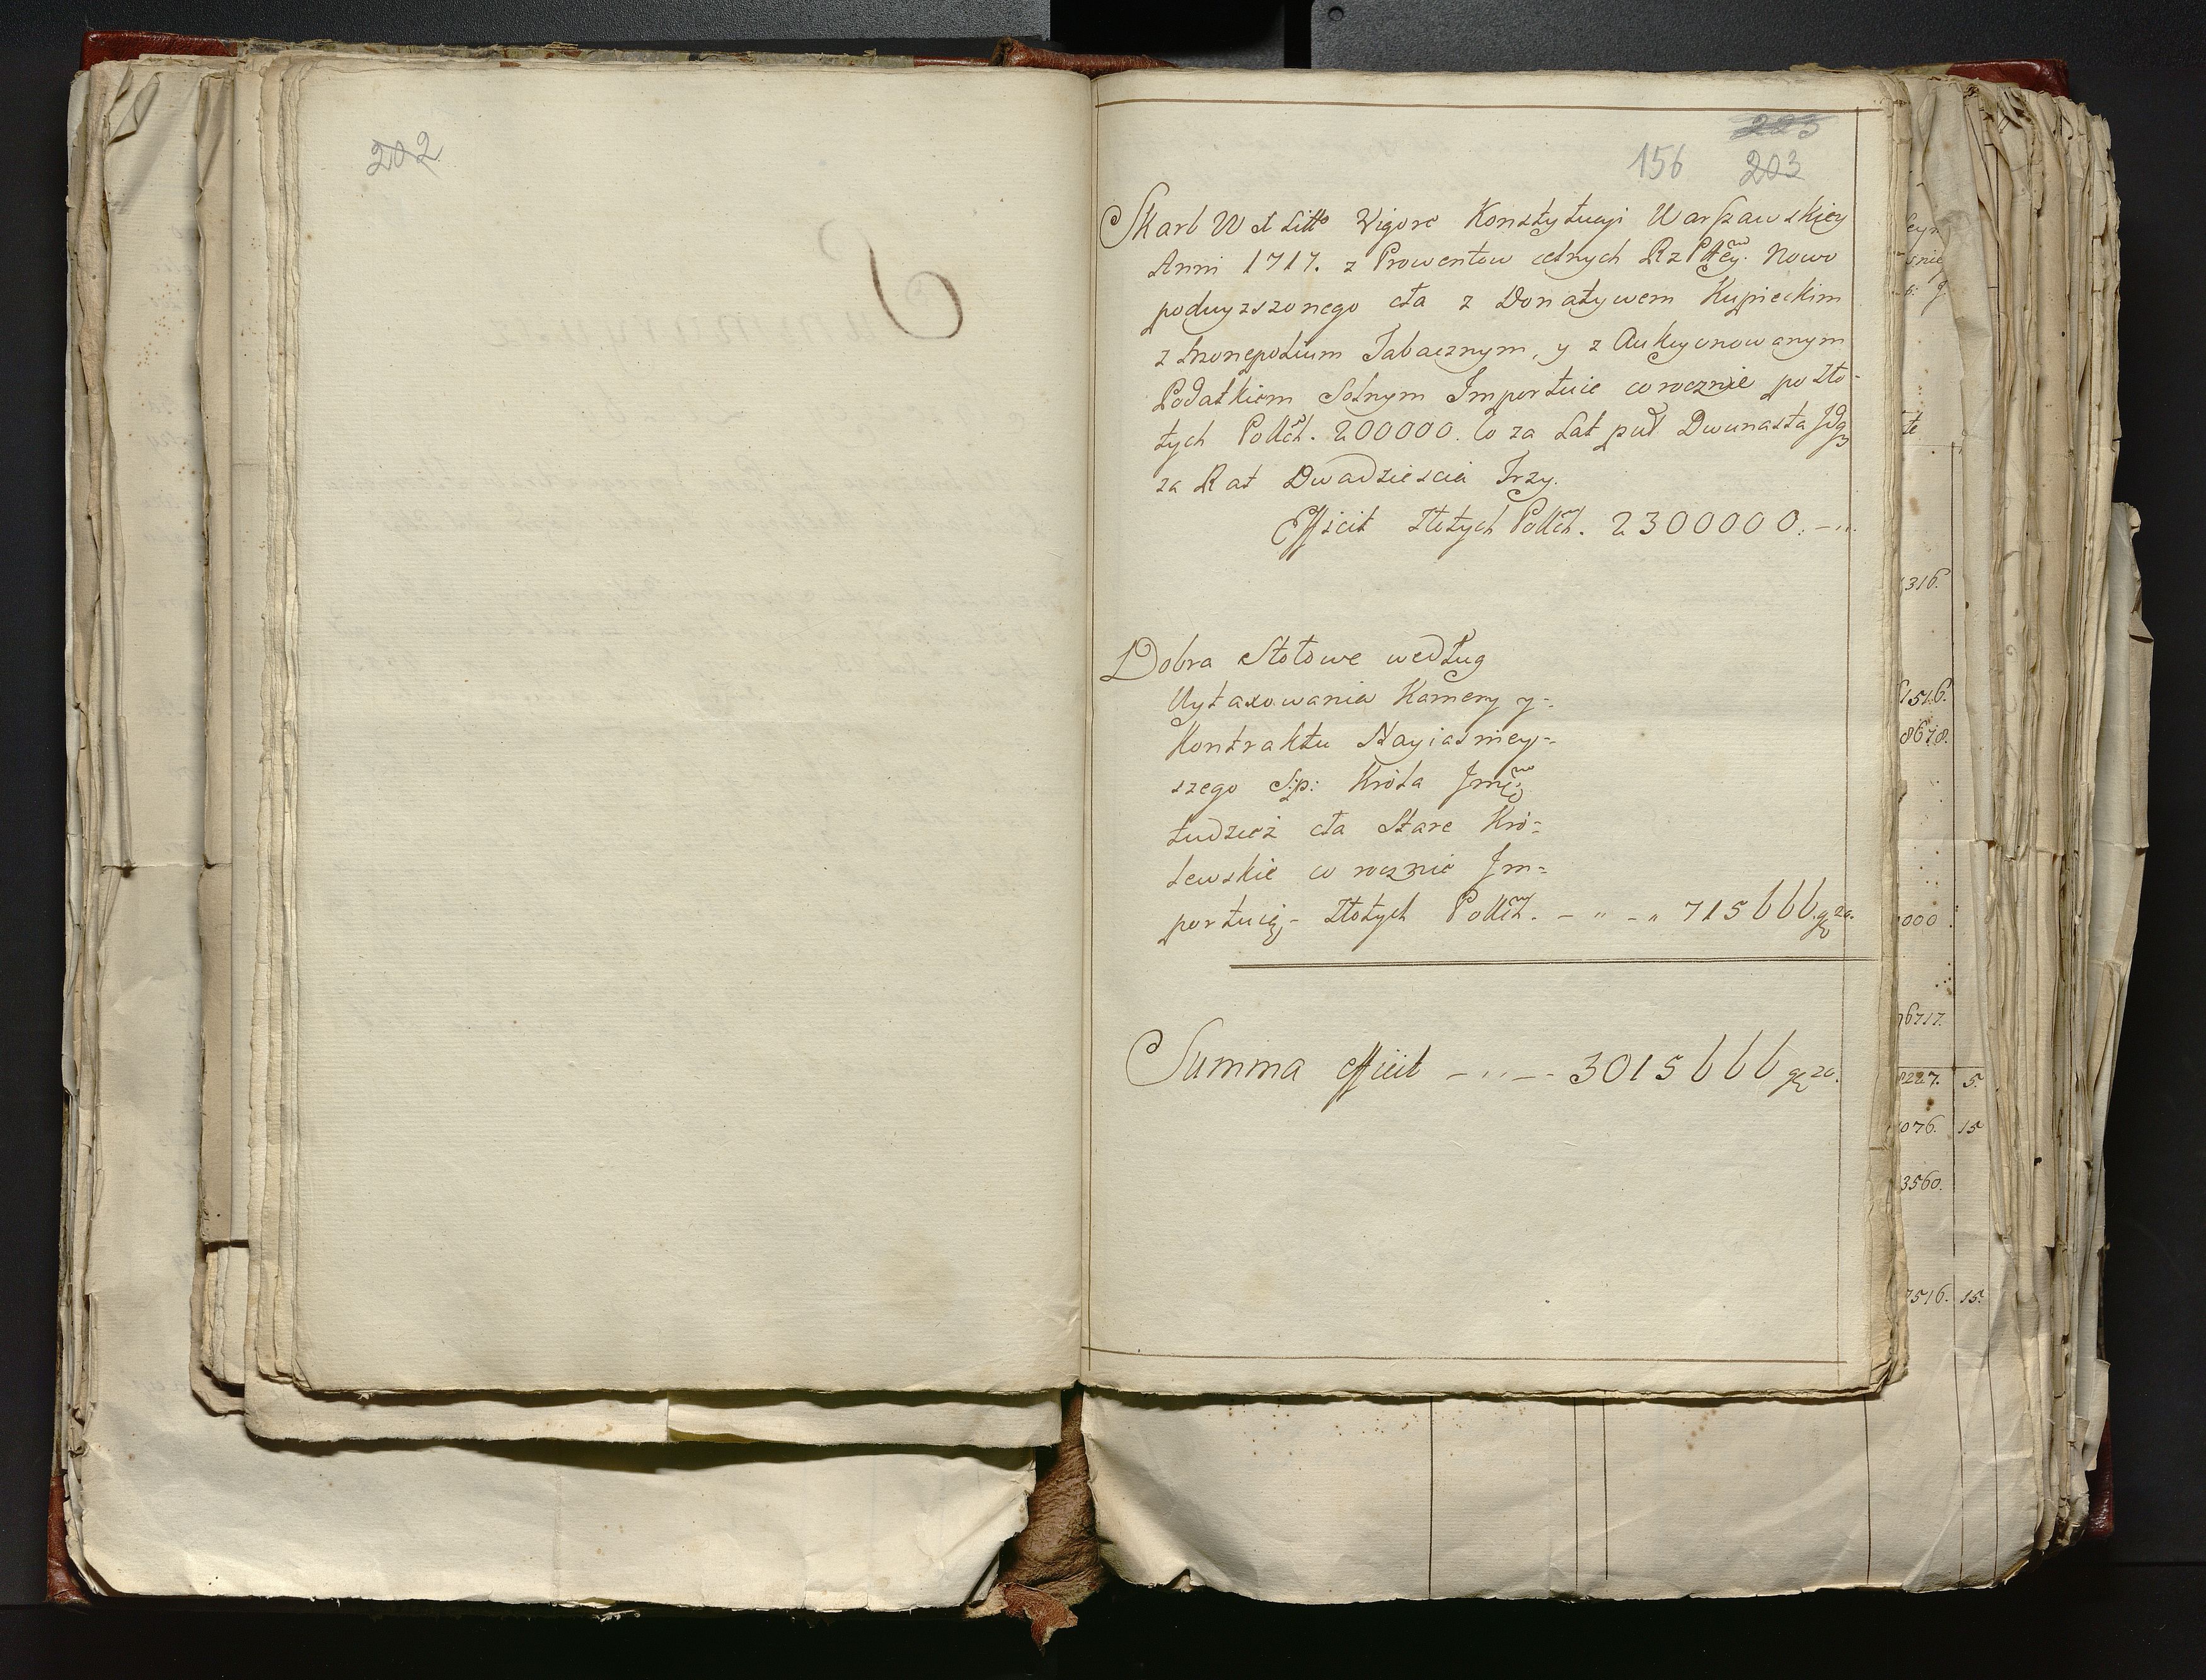 202
223
156 203
Skarb W X Litto Vigore Konstytucyi Warszawskiey
Anni 1717. z Prowentow celnych RzPltey. Nowo
podwyzszonego cła z Donatywem Kupieckim
z Monopolium Tabacznym, y z Aukcyonowanym
Podatkiem Solnym Importuie corocznie po Zło-
tych Pollch. 200000. Co za Lat puł Dwunasta
za Rat Dwadziescia Trzy.
Efficit Złotych Pollch. 2300000.
Dobra Stołowe według
Wytaxowania Kamery y-
Kontraktu Nayiasniey-
szego S:p: Króla Jmci
tudzież cła Stare Kró-
lewskie co rocznie Im-
portuią,- Złotych Pollch. - " - " 715666. g 20.
Summa efficit - " - - 3015666 g 20.
316.
1516.
8678.
000
6717.
8227. 5.
076. 15
3560.
7516. 15.